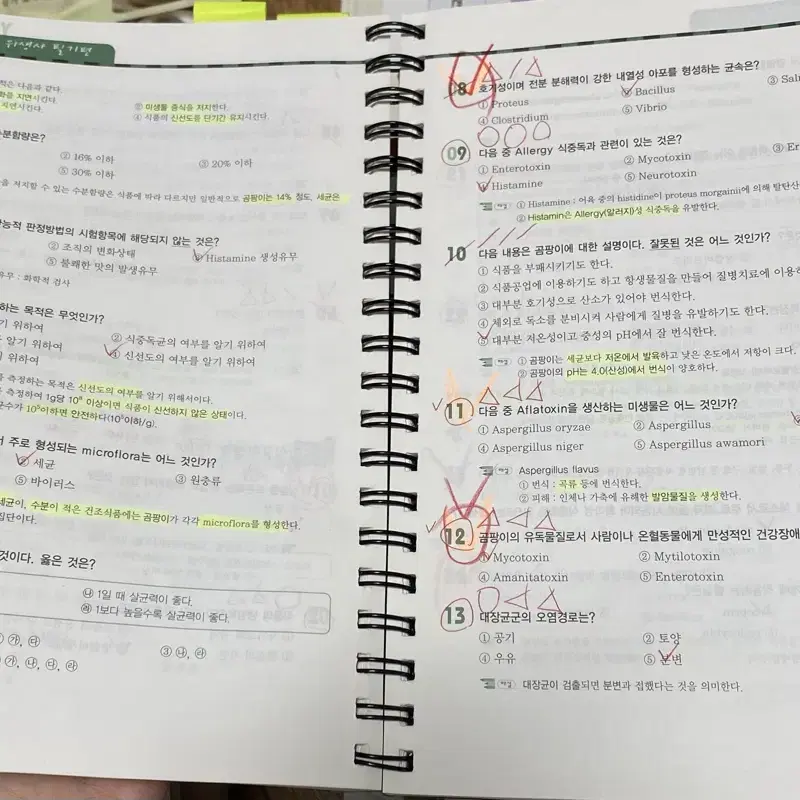 위생사 필기편
적은 다음과 같다.
화를 지연시킨다.
② 미생물 증식을 저지한다.
지연시킨다.
④ 식품의 신선도를 단기간 유지시킨다.
수분함량은?
② 16% 이하
③ 20% 이하
⑤ 30% 이하
을 저지할 수 있는 수분함량은 식품에 따라 다르지만 일반적으로 곰팡이는 14% 정도, 세균은
능적 판정방법의 시험항목에 해당되지 않는 것은?
② 조직의 변화상태
Histamine 생성유무
⑤ 불쾌한 맛의 발생유무
유무 : 화학적 검사
하는 목적은 무엇인가?
기 위하여
② 식중독균의 여부를 알기 위하여
를 알기 위하여
④ 신선도의 여부를 알기 위하여
위하여
를 측정하는 목적은 신선도의 여부를 알기 위해서이다.
측정하여 1g당 10⁸ 이상이면 식품이 신선하지 않은 상태이다.
균수가 10⁵이하면 안전하다(10⁵이하/g).
서 주로 형성되는 microflora는 어느 것인가?
② 세균
③ 원충류
⑤ 바이러스
세균이, 수분이 적은 건조식품에는 곰팡이가 각각 microflora를 형성한다.
집단이다.
것이다. 옳은 것은?
㉯ 1일 때 살균력이 좋다.
㉱ 1보다 높을수록 살균력이 좋다.
㉮, ㉰
③ ㉯, ㉱
㉮, ㉯, ㉰, ㉱
08 호기성이며 전분 분해력이 강한 내열성 아포를 형성하는 균속은?
① Proteus
② Bacillus
③ Sal
④ Clostridium
⑤ Vibrio
09 다음 중 Allergy 식중독과 관련이 있는 것은?
① Enterotoxin
② Mycotoxin
③ Er
④ Histamine
⑤ Neurotoxin
해설 ① Histamine : 어육 중의 histidine이 proteus morganii에 의해 탈탄산
② Histamin은 Allergy(알러지)성 식중독을 유발한다.
10 다음 내용은 곰팡이에 대한 설명이다. 잘못된 것은 어느 것인가?
① 식품을 부패시키기도 한다.
② 식품공업에 이용하기도 하고 항생물질을 만들어 질병치료에 이용하
③ 대부분 호기성으로 산소가 있어야 번식한다.
④ 체외로 독소를 분비시켜 사람에게 질병을 유발하기도 한다.
⑤ 대부분 저온성이고 중성의 pH에서 잘 번식한다.
해설 ① 곰팡이는 세균보다 저온에서 발육하고 낮은 온도에서 저항이 크다.
② 곰팡이의 pH는 4.0(산성)에서 번식이 양호하다.
11 다음 중 Aflatoxin을 생산하는 미생물은 어느 것인가?
① Aspergillus oryzae
② Aspergillus
④ Aspergillus niger
⑤ Aspergillus awamori
해설 Aspergillus flavus
① 번식 : 곡류 등에 번식한다.
② 피해 : 인체나 가축에 유해한 발암물질을 생성한다.
12 곰팡이의 유독물질로서 사람이나 온혈동물에게 만성적인 건강장애
① Mycotoxin
② Mytilotoxin
④ Amanitatoxin
⑤ Enterotoxin
13 대장균군의 오염경로는?
① 공기
② 토양
④ 우유
⑤ 분변
해설 대장균이 검출되면 분변과 접했다는 것을 의미한다.